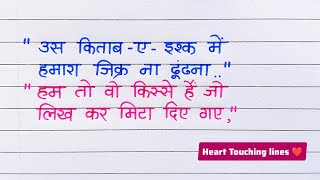 " उस किताब -ए- इश्क में
हमारा जिक्र ना ढूंढना.."
" हम तो वो किस्से हैं जो
लिख कर मिटा दिए गए,"
Heart Touching lines ❤️